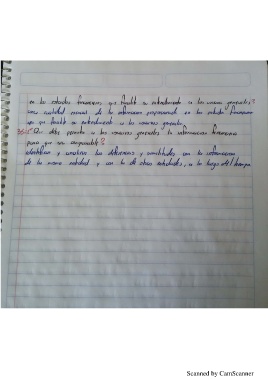 en los estados financieros que facilite su entendimiento a los usuarios generales?
una cualidad esencial de la información proporcionada en los estados financieros
es que facilite su entendimiento a los usuarios generales.
permitir a los usuarios generales la información financiera
para que sea comparable?
identificar y analizar las diferencias y similitudes con la información
de la misma entidad y con la de otras entidades, a lo largo del tiempo
Scanned by CamScanner